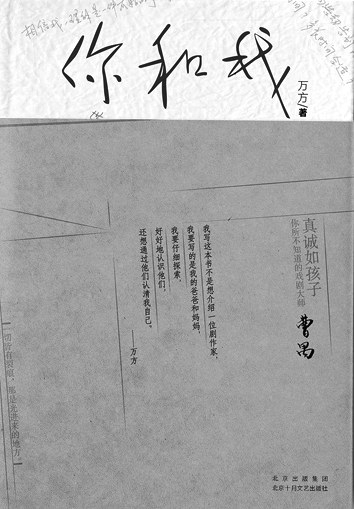 你和我
万方/著
真诚如孩子
你所不知道的戏剧大师
曹禺
我写这本书不是想介绍一位剧作家,
我要写的是我的爸爸和妈妈,
我要仔细探索,
好好地认识他们,
还想通过他们认清我自己。
万方
一切皆有裂痕,那是光进来的地方。
北京出版集团
北京十月文艺出版社